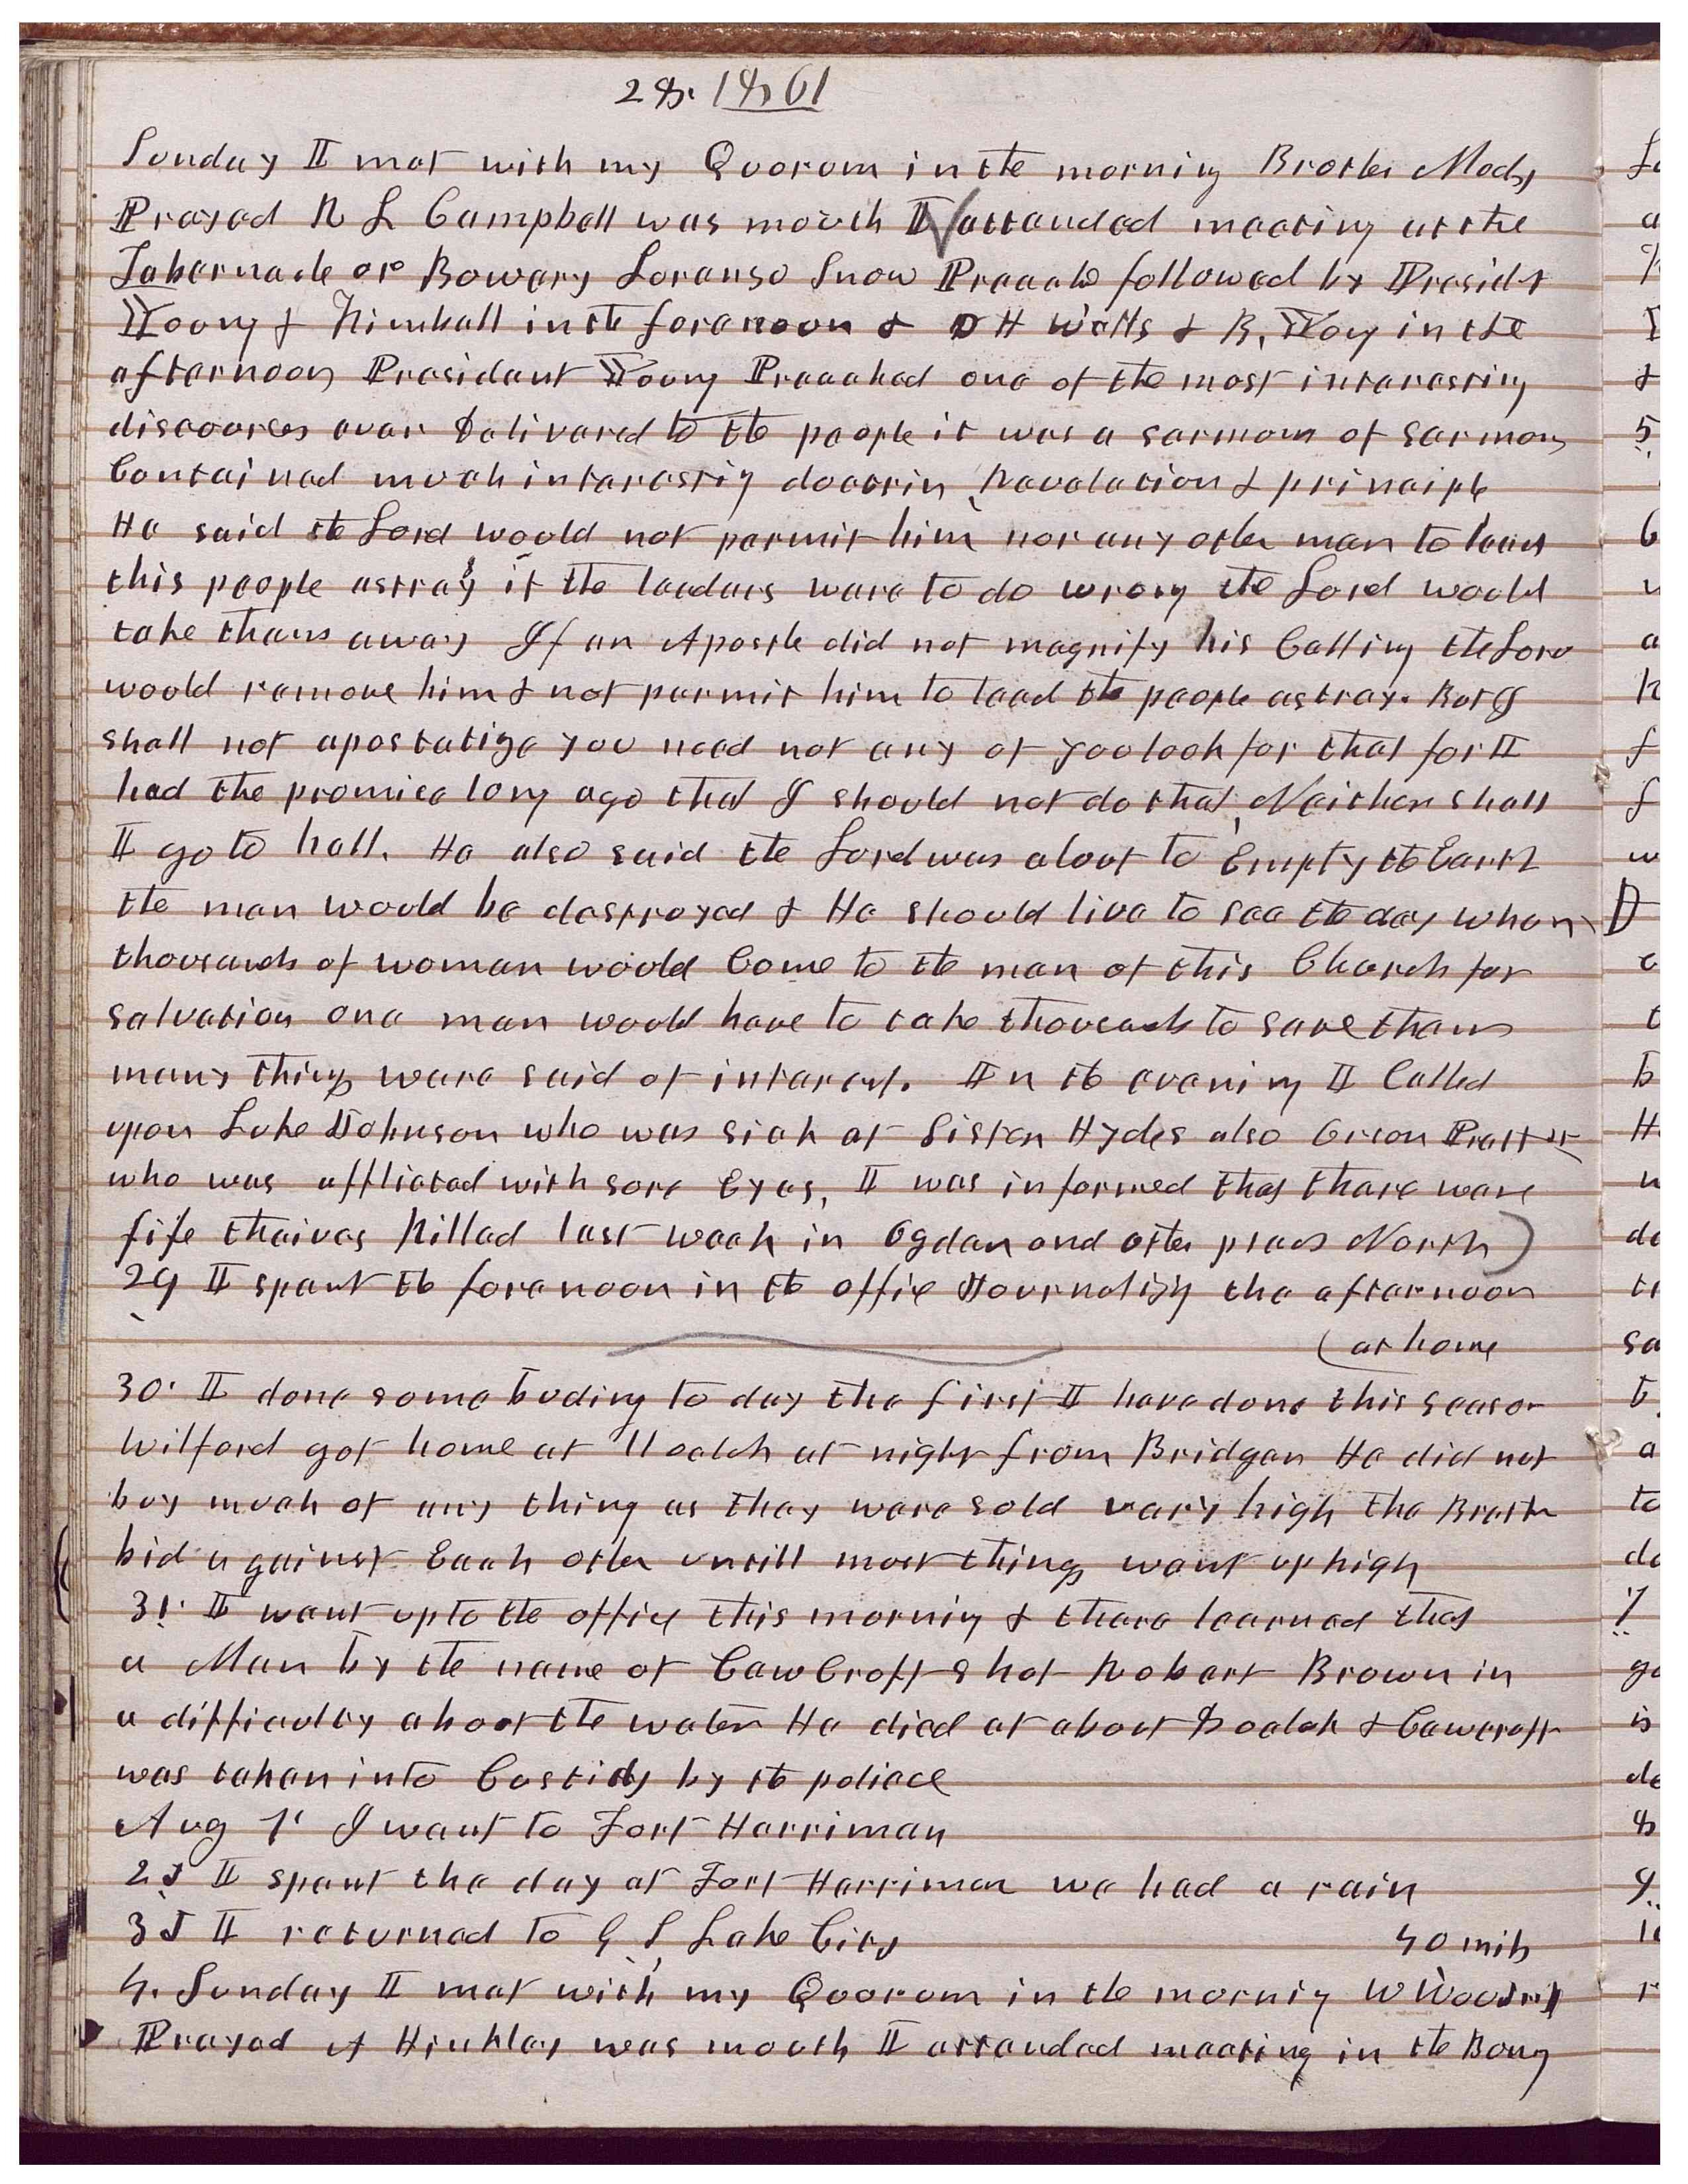 28. 1861
Sunday I met with my Quorum in the morning Brother Mody
Prayed R L Campbell was mouth I attended meeting at the
Tabernacle or Bowery Loranso Snow Preach followed by Presidt
Young & Kimball in the forenoon & D H Wells & B. Yong in the
afternoon President Young Preached one of the most interesting
discourses ever Delivered to the people it was a sermon of Sermons
Contained much interestig doctrin, Revelation & principle
He said the Lord would not permit him nor any other man to lead
this people astray if the leaders ware to do wrong the Lord would
take them away If an Apostle did not magnify his Calling the Lord
would remove him & not permit him to lead the people astray. But I
shall not apostatize you need not any of you look for that for I
had the promice long ago that I should not do that, Neither shall
I go to hell. He also said the Lord was about to Empty the Earth
the men would be destroyed & He should live to see the day when
thousands of women would Come to the men of this Church for
salvation one man would have to take thousands to save them
many things ware said of interest. In the evening I Called
upon Luke Johnson who was sick at Sister Hydes also Orson Pratt sr
who was afflicted with sore Eyes, I was informed that thare ware
fife theives Killed last week in Ogden and other places North)
29 I spent the forenoon in the office Journalizing the afternoon
(at home
30. I done some buding to day the first I have done this season
Wilford got home at 11 oclok at night from Bridger He did not
buy much of any thing as they ware sold very high the Breth
bid against Each other untill most things went up high
31. I went up to the office this morning & thare learned that
a Man by the name of CawCroft shot Robert Brown in
a difficulty about the water He died at about 8 oclok & Cawcroft
was taken into Custidy by the poliece
Aug 1st I went to Fort Harriman
2d I spent the day at Fort Harriman we had a rain
3d I returned to G S Lake City 40 mils
4. Sunday I met with my Quorum in the mornig W Woodruff
Prayed A Hinkley was mouth I attended meeting in the Bowery